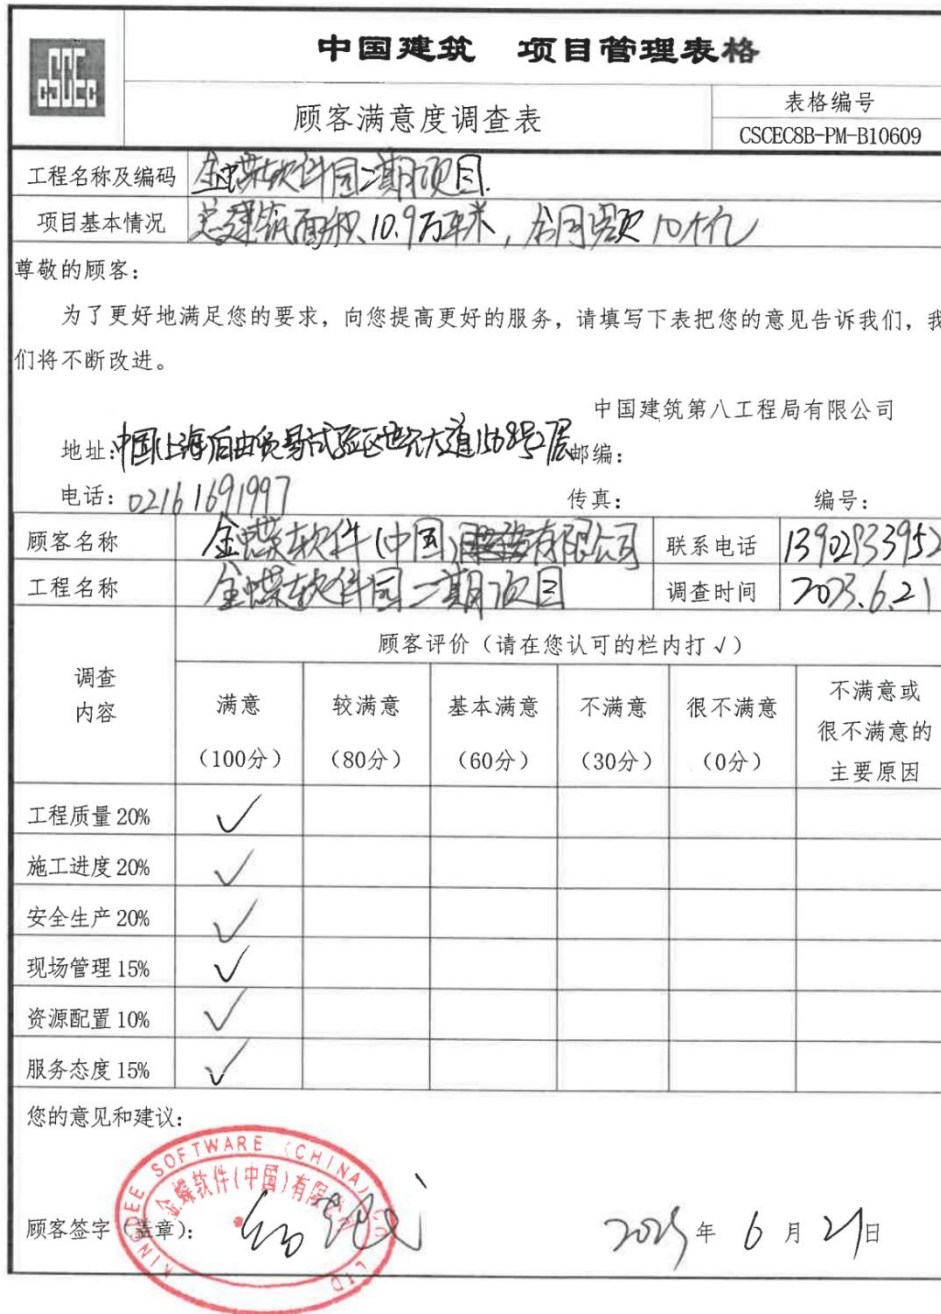 CSCEC
中国建筑 项目管理表格
顾客满意度调查表
表格编号
CSCEC8B-PM-B10609
工程名称及编码 金蝶软件园二期项目.
项目基本情况 总建筑面积10.9万平米,合同额10个亿
尊敬的顾客:
为了更好地满足您的要求,向您提高更好的服务,请填写下表把您的意见告诉我们,我
们将不断改进。
中国建筑第八工程局有限公司
地址:中国(上海)自由贸易试验区世纪大道1568号27层 邮编:
电话:02161691997 传真: 编号:
顾客名称 金蝶软件(中国)有限公司 联系电话
工程名称 金蝶软件园二期项目 调查时间 2023.6.21
调查
内容
顾客评价(请在您认可的栏内打√)
满意
(100分)
较满意
(80分)
基本满意
(60分)
不满意
(30分)
很不满意
(0分)
不满意或
很不满意的
主要原因
工程质量20% ✓
施工进度20% ✓
安全生产20% ✓
现场管理15% ✓
资源配置10% ✓
服务态度15% ✓
您的意见和建议:
KINGDEE SOFTWARE (CHINA) CO LTD
金蝶软件(中国)有限公司
顾客签字(盖章):
年 6 月 21 日